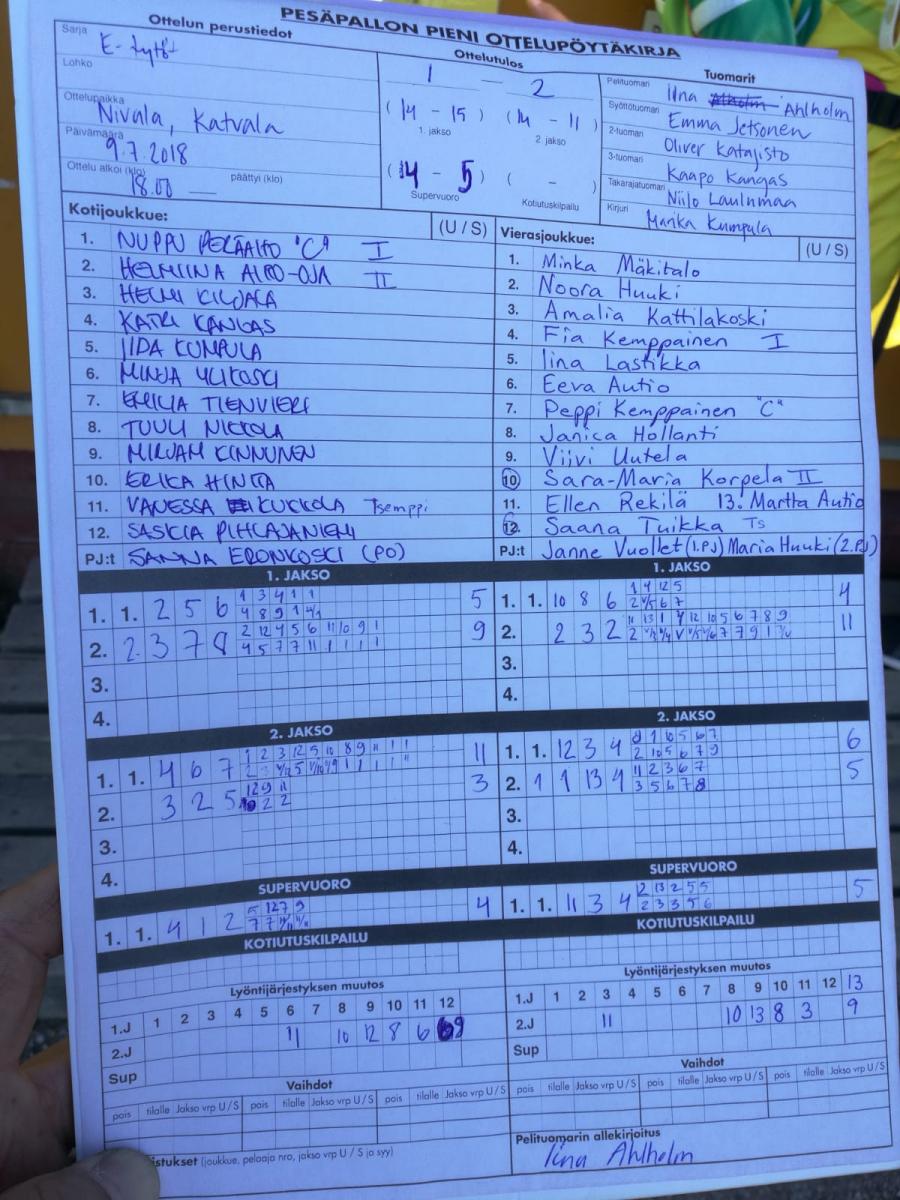 PESÄPALLON PIENI OTTELUPÖYTÄKIRJA
Ottelun perustiedot
Sarja E-tytöt
Lohko
Ottelupaikka Nivala, Katvala
Päivämäärä 9.7.2018
Ottelu alkoi (klo) 18.00 päättyi (klo)
Ottelutulos
1 - 2
(14 - 15) (14 - 11)
1. jakso 2. jakso
(4 - 5) ( - )
Supervuoro Kotiutuskilpailu
Tuomarit
Pelituomari Iina Ahlholm
Syöttötuomari Emma Jetsonen
2-tuoman Oliver Katajisto
3-tuoman Kaapo Kangas
Takarajatuomari Niilo Laulumaa
Kirjuri Marika Kumpula
Kotijoukkue: (U / S)
1. NUPPU PERÄAHO "C" I
2. HELMIINA ALPO-OJA II
3. HELMI KILJALA
4. KATRI KANGAS
5. IIDA KUMPULA
6. MINJA YLIKOSKI
7. EMILIA TIENVIERI
8. TUULI NIKKOLA
9. MIRJAM KINNUNEN
10. ERIKA HINTA
11. VANESSA KUKKOLA Tsemppi
12. SASKIA PIHLAJANIEMI
PJ:t SANNA ERONKOSKI (PO)
Vierasjoukkue: (U / S)
1. Minka Mäkitalo
2. Noora Huuki
3. Amalia Kattilakoski
4. Fia Kemppainen I
5. Iina Lastikka
6. Eeva Autio
7. Peppi Kemppainen "C"
8. Janica Hollanti
9. Viivi Uutela
10 Sara-Maria Korpela II
11. Ellen Rekilä 13. Martta Autio
12. Saana Tuikka Ts
PJ:t Janne Vuollet (1.PJ) Maria Huuki (2.PJ)
1. JAKSO
1. 1. 2 5 6 1 3 4 1 1 5
4 8 9 1
2. 2. 3 7 8 2 12 4 5 6 11 10 9 1 9
4 5 7 7 11 1 1 1 1
3.
4.
1. JAKSO
1. 1. 10 8 6 1 4 12 5 4
2 4/5 6 7
2. 2 3 2 11 13 1 4 12 10 5 6 7 8 9 11
3.
4.
2. JAKSO
1. 1. 4 6 7 1 2 3 12 5 10 8 9 11 1 1 11
2. 3 2 5 12 9 11 3
2 2
3.
4.
2. JAKSO
1. 1. 12 3 4 8 1 10 5 6 7 6
2 10 5 6 7 9
2. 1 1 13 4 11 2 3 6 7 5
3 5 6 7 8
3.
4.
SUPERVUORO
1. 1. 4 1 2 5 12 7 9 4
SUPERVUORO
1. 1. 11 3 4 2 13 2 5 5 5
2 3 3 5 6
KOTIUTUSKILPAILU
KOTIUTUSKILPAILU
Lyöntijärjestyksen muutos
1.J 1 2 3 4 5 6 7 8 9 10 11 12
2.J 11 10 12 8 6 9
Sup
Lyöntijärjestyksen muutos
1.J 1 2 3 4 5 6 7 8 9 10 11 12 13
2.J 11 10 13 8 3 9
Sup
Vaihdot
pois tilalle Jakso vrp U / S pois tilalle Jakso vrp U / S pois tilalle Jakso vrp U / S
Vaihdot
pois tilalle Jakso vrp U / S pois tilalle Jakso vrp U / S pois tilalle Jakso vrp U / S
istukset (joukkue, pelaaja nro, jakso vrp U / S ja syy)
Pelituomarin allekirjoitus
Iina Ahlholm